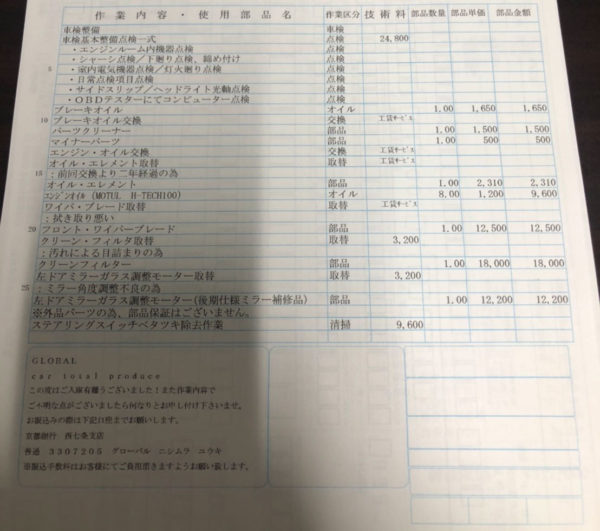 作業内容・使用部品名 作業区分 技術料 部品数量 部品単価 部品金額
車検整備 車検
車検基本整備点検一式 点検 24,800
・エンジンルーム内機器点検 点検
・シャーシ点検／下廻り点検、締め付け 点検
5 ・室内電気機器点検／灯火廻り点検 点検
・日常点検項目点検 点検
・サイドスリップ／ヘッドライト光軸点検 点検
・OBDテスターにてコンピューター点検 点検
ブレーキオイル オイル 1.00 1,650 1,650
10 ブレーキオイル交換 交換 工賃サービス
パーツクリーナー 部品 1.00 1,500 1,500
マイナーパーツ 部品 1.00 500 500
エンジン・オイル交換 交換 工賃サービス
オイル・エレメント取替 取替 工賃サービス
15 ：前回交換より二年経過の為
オイル・エレメント 部品 1.00 2,310 2,310
エンジンオイル(MOTUL H-TECH100) オイル 8.00 1,200 9,600
ワイパ・ブレード取替 取替 工賃サービス
：拭き取り悪い
20 フロント・ワイパーブレード 部品 1.00 12,500 12,500
クリーン・フィルタ取替 取替 3,200
：汚れによる目詰まりの為
クリーンフィルター 部品 1.00 18,000 18,000
左ドアミラーガラス調整モーター取替 取替 3,200
25 ：ミラー角度調整不良の為
左ドアミラーガラス調整モーター(後期仕様ミラー補修品) 部品 1.00 12,200 12,200
※外品パーツの為、部品保証はございません。
ステアリングスイッチベタツキ除去作業 清掃 9,600
GLOBAL
car total produce
この度はご入庫有難うございました！また作業内容で
ご不明な点がございましたら何なりとお申し付け下さいませ。
お振込みの際は下記口座までお願いします。
京都銀行 西七条支店
普通 3307205 グローバル ニシムラ ユウキ
※振込手数料はお客様にてご負担頂きますようお願い致します。